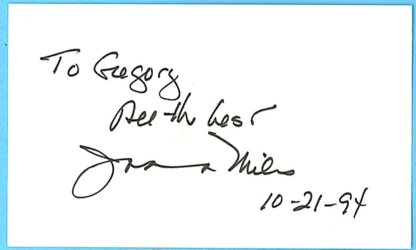 To Gregory
All the best
Joanna Miles
10-21-94